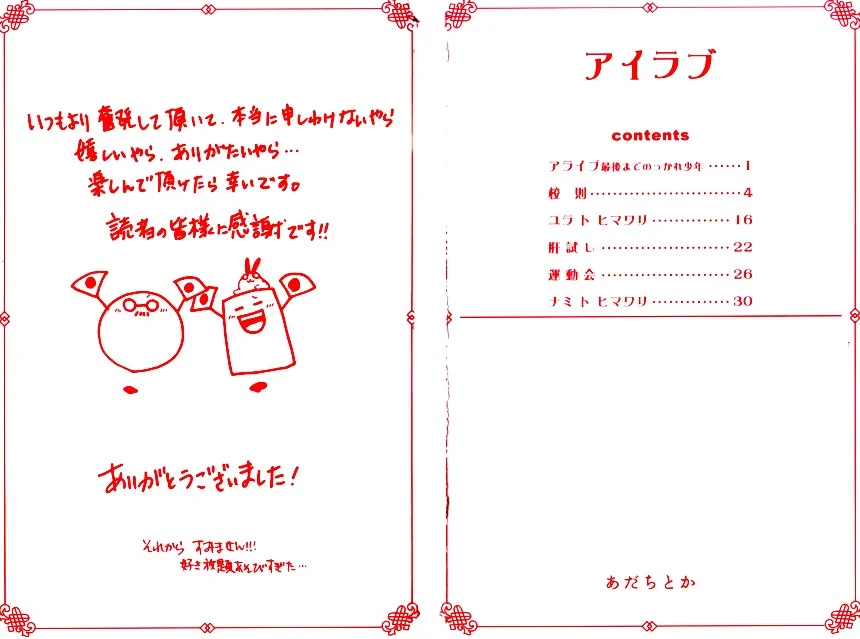 いつもより奮発して頂いて、本当に申しわけないやら
嬉しいやら、ありがたいやら…
楽しんで頂けたら幸いです。
読者の皆様に感謝です!!
ありがとうございました!
それから すみません!!!
好き放題あそびすぎた…
アイラブ
contents
アライブ最後までのつかれ少年……1
校 則………………………4
ユラト ヒマワリ……………16
肝試し……………………22
運動会……………………26
ナミト ヒマワリ……………30
あだちとか